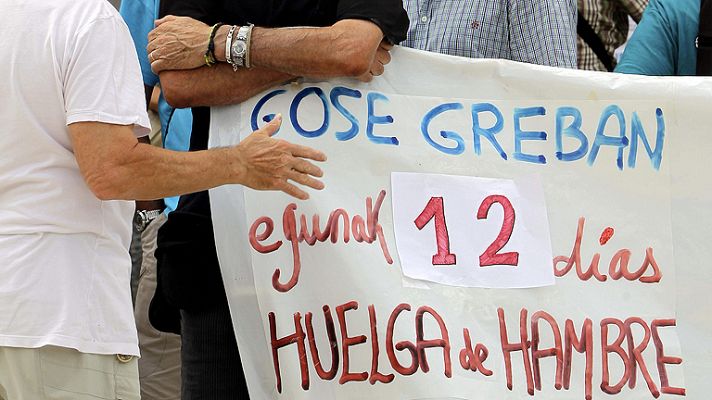 GOSE GREBAN
egunak 12 días
HUELGA de HAMBRE